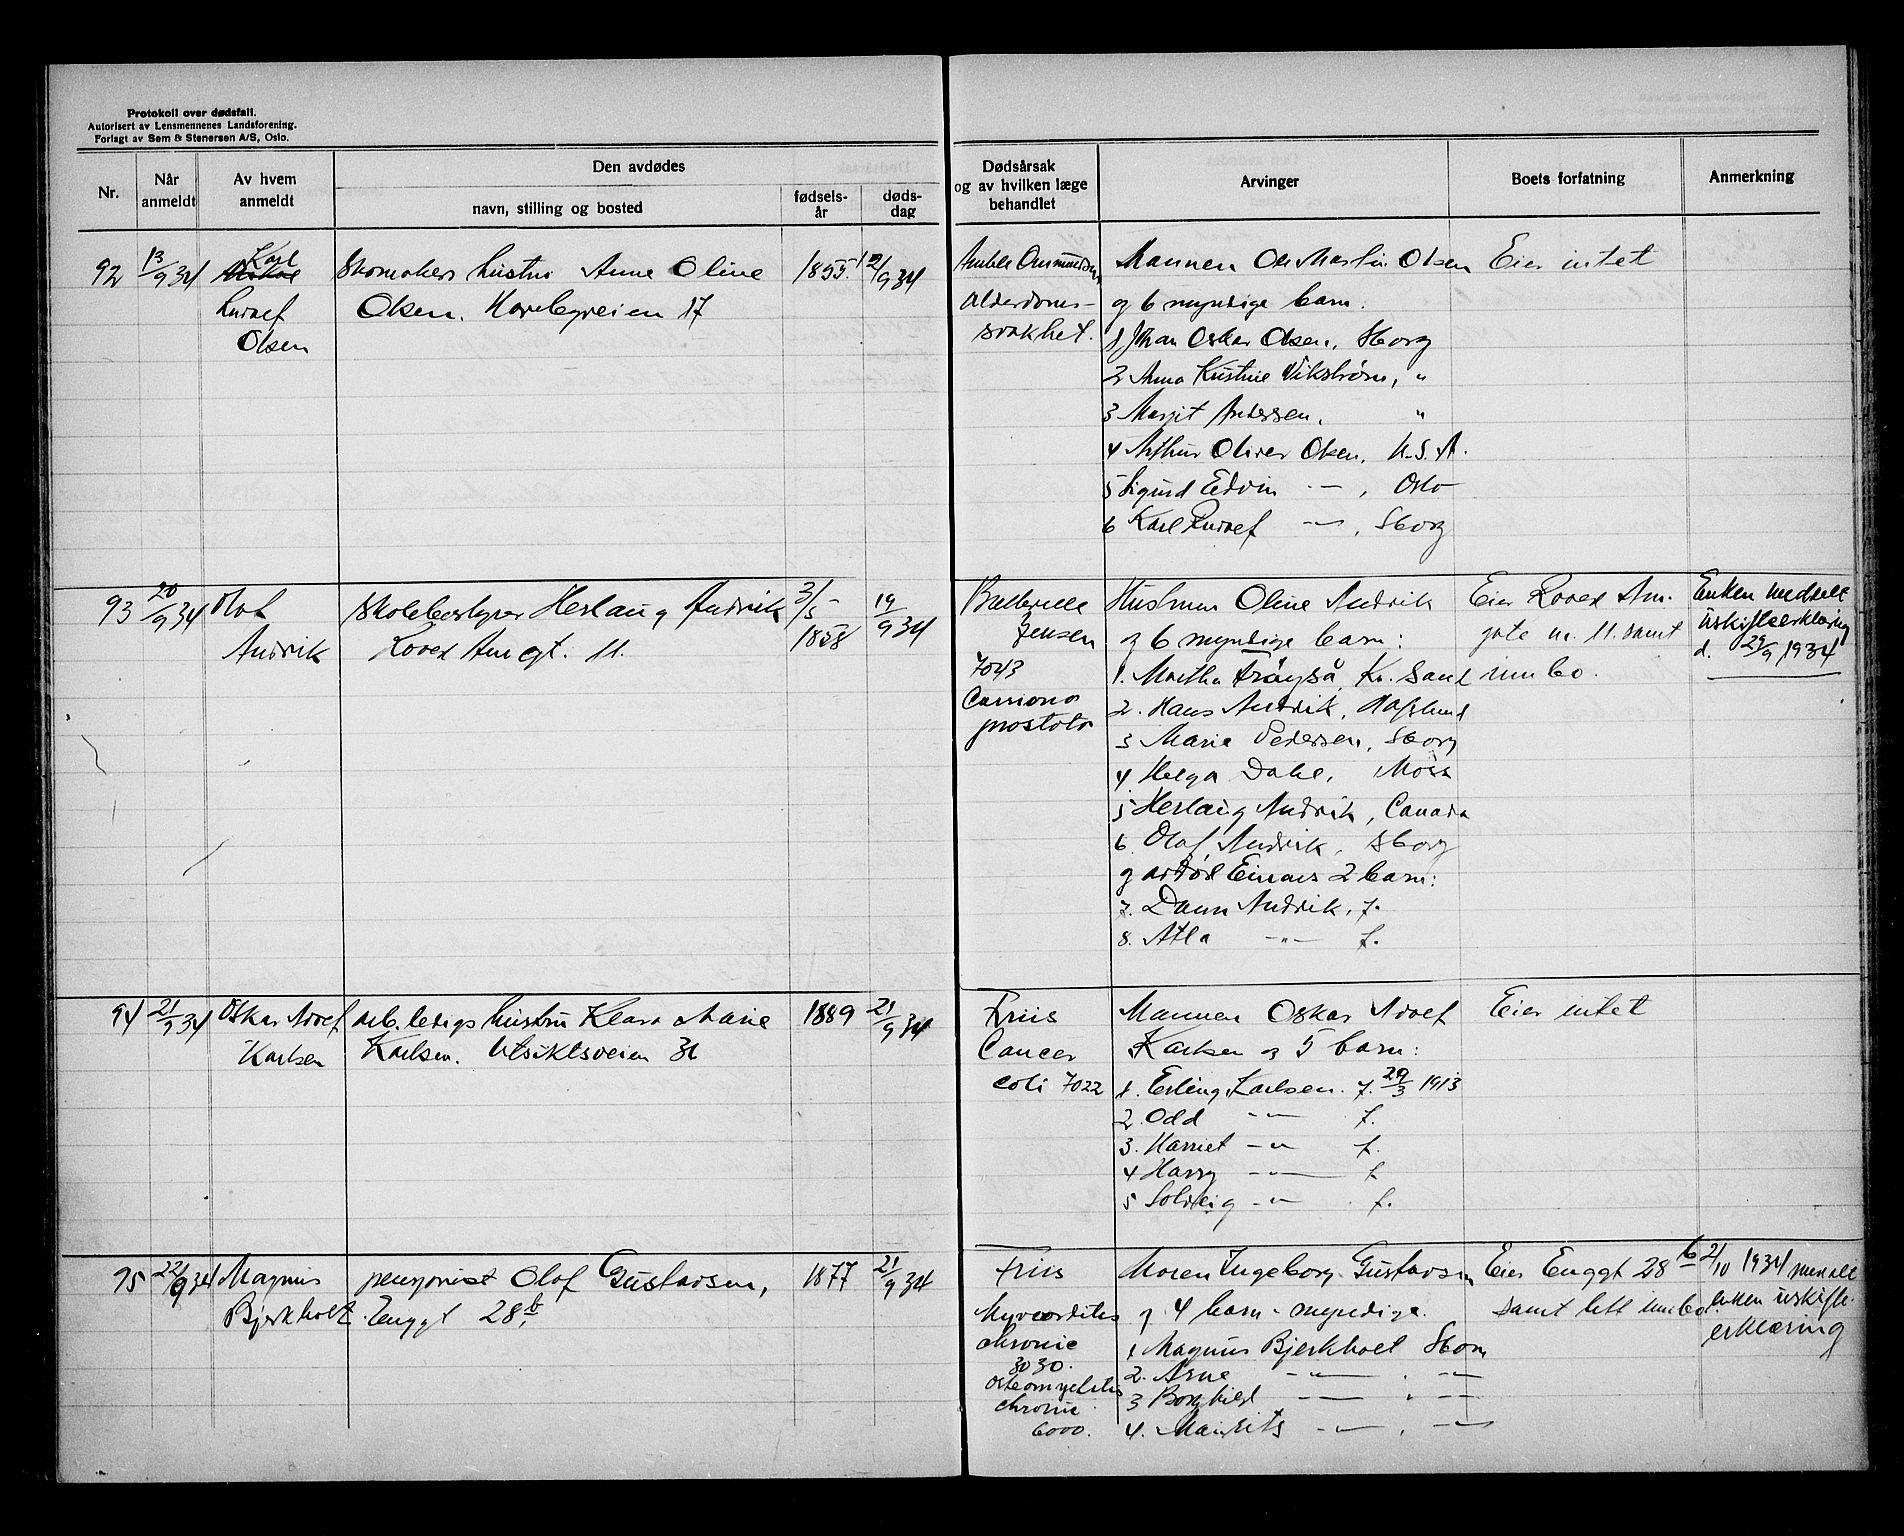 Protokoll over dødsfall.
Autorisert av Lensmennenes Landsforening.
Forlagt av Sem & Stenersen A/S, Oslo.
Nr.
Når anmeldt
Av hvem anmeldt
Den avdødes
navn, stilling og bosted
fødselsår
dødsdag
Dødsårsak og av hvilken læge behandlet
Arvinger
Boets forfatning
Anmerkning
92 13/9 34 Karl
Ludvef
Olsen
Skomakers hustru Anne Oline
Olsen. Havebyveien 17
1855. 12/9 34
Alderdoms-
svakhet.
Mannen Ole Martin Olsen
og 6 myndige barn.
1 Johan Oskar Olsen, Sborg
2 Anna Kristine Vikstrøm, "
3 Margit Andersen, "
4 Arthur Oliver Olsen, U.S.A.
5 Sigurd Edvin -"-, Oslo
6 Karl Ludvef -"-, Sborg
Eier intet
93 20/9 34 Olaf
Andvik
Skolebestyrer Herlaug Andvik
Roald Am.gt. 11.
3/5
1858
19/9 34
Jensen
7043
prostata
Hustruen Oline Andvik
og 6 myndige barn:
1. Martha Kr. Sand
2. Hans Andvik, Hafslund
3 Marie Pedersen, Sborg
4. Helga Dahl, Moss
5 Herlaug Andvik, Canada
6. Olaf Andvik, Sborg
og avdød Einars 2 barn:
7. Andvik, f.
8. Atla -"- f.
Eier Roald Am.
gate nr. 11. samt
innbo.
Enken meddelt
uskifteerklæring
d. 29/9 1934
94 21/9 34 Oskar Adolf
Karlsen
arb. ledigs hustru Klara Marie
Karlsen. Utsiktsveien 31
1889 21/9 34
Friis
Cancer
coli 7022
Mannen Oskar Adolf
Karlsen og 5 barn:
1. Erling Karlsen. f. 29/3 1913
2. Odd -"- f.
3. Harriet -"- f.
4 Harry -"- f
5 Solveig -"- f.
Eier intet
95 22/9 34 Magnus
Bjerkholt.
pensjonist Olaf Gustavsen,
Enggt 28b.
1877 21/9 34
Friis
Myocarditis
chronic
3030.
Osteomyelitis
chronic
6000.
Moren Ingeborg Gustavsen
og 4 barn - myndige.
1 Magnus Bjerkholt Sborg
2. Arne -"-, -"-
3 Borghild -"-, -"-
4. Mauritz -"-, -"-
Eier Enggt 28b
samt litt innbo.
2/10 1934 meddelt
enken uskifte-
erklæring